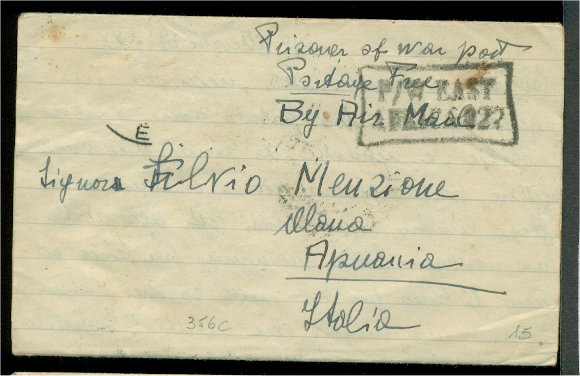 Prisoner of war post
Postage Free
By Air Mail
P/W EAST
AFRICA 227
E
Signora Silvio Menzione
Apuania
Italia
356C 15